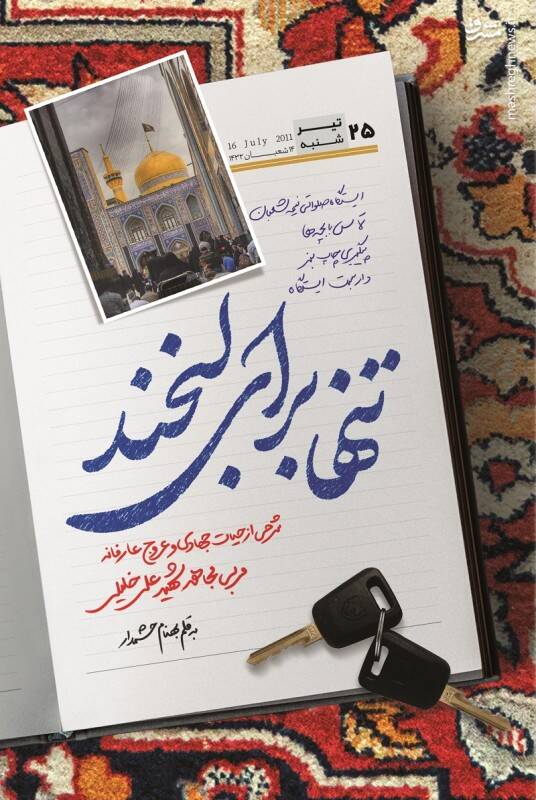 مشرق
mashreghnews.ir
۲۵ تیر
شنبه
16 July 2011
۱۴ شعبان ۱۴۳۲
ایستگاه صلواتی نیمه شعبان
تماس با بچه‌ها
پیگیری چاپ بنر
داربست ایستگاه
تنها برای لبخند
شرحی از حیات جهادی و عروج عارفانه
مربی مجاهد شهید علی خلیلی
به قلم بهنام حشمدار